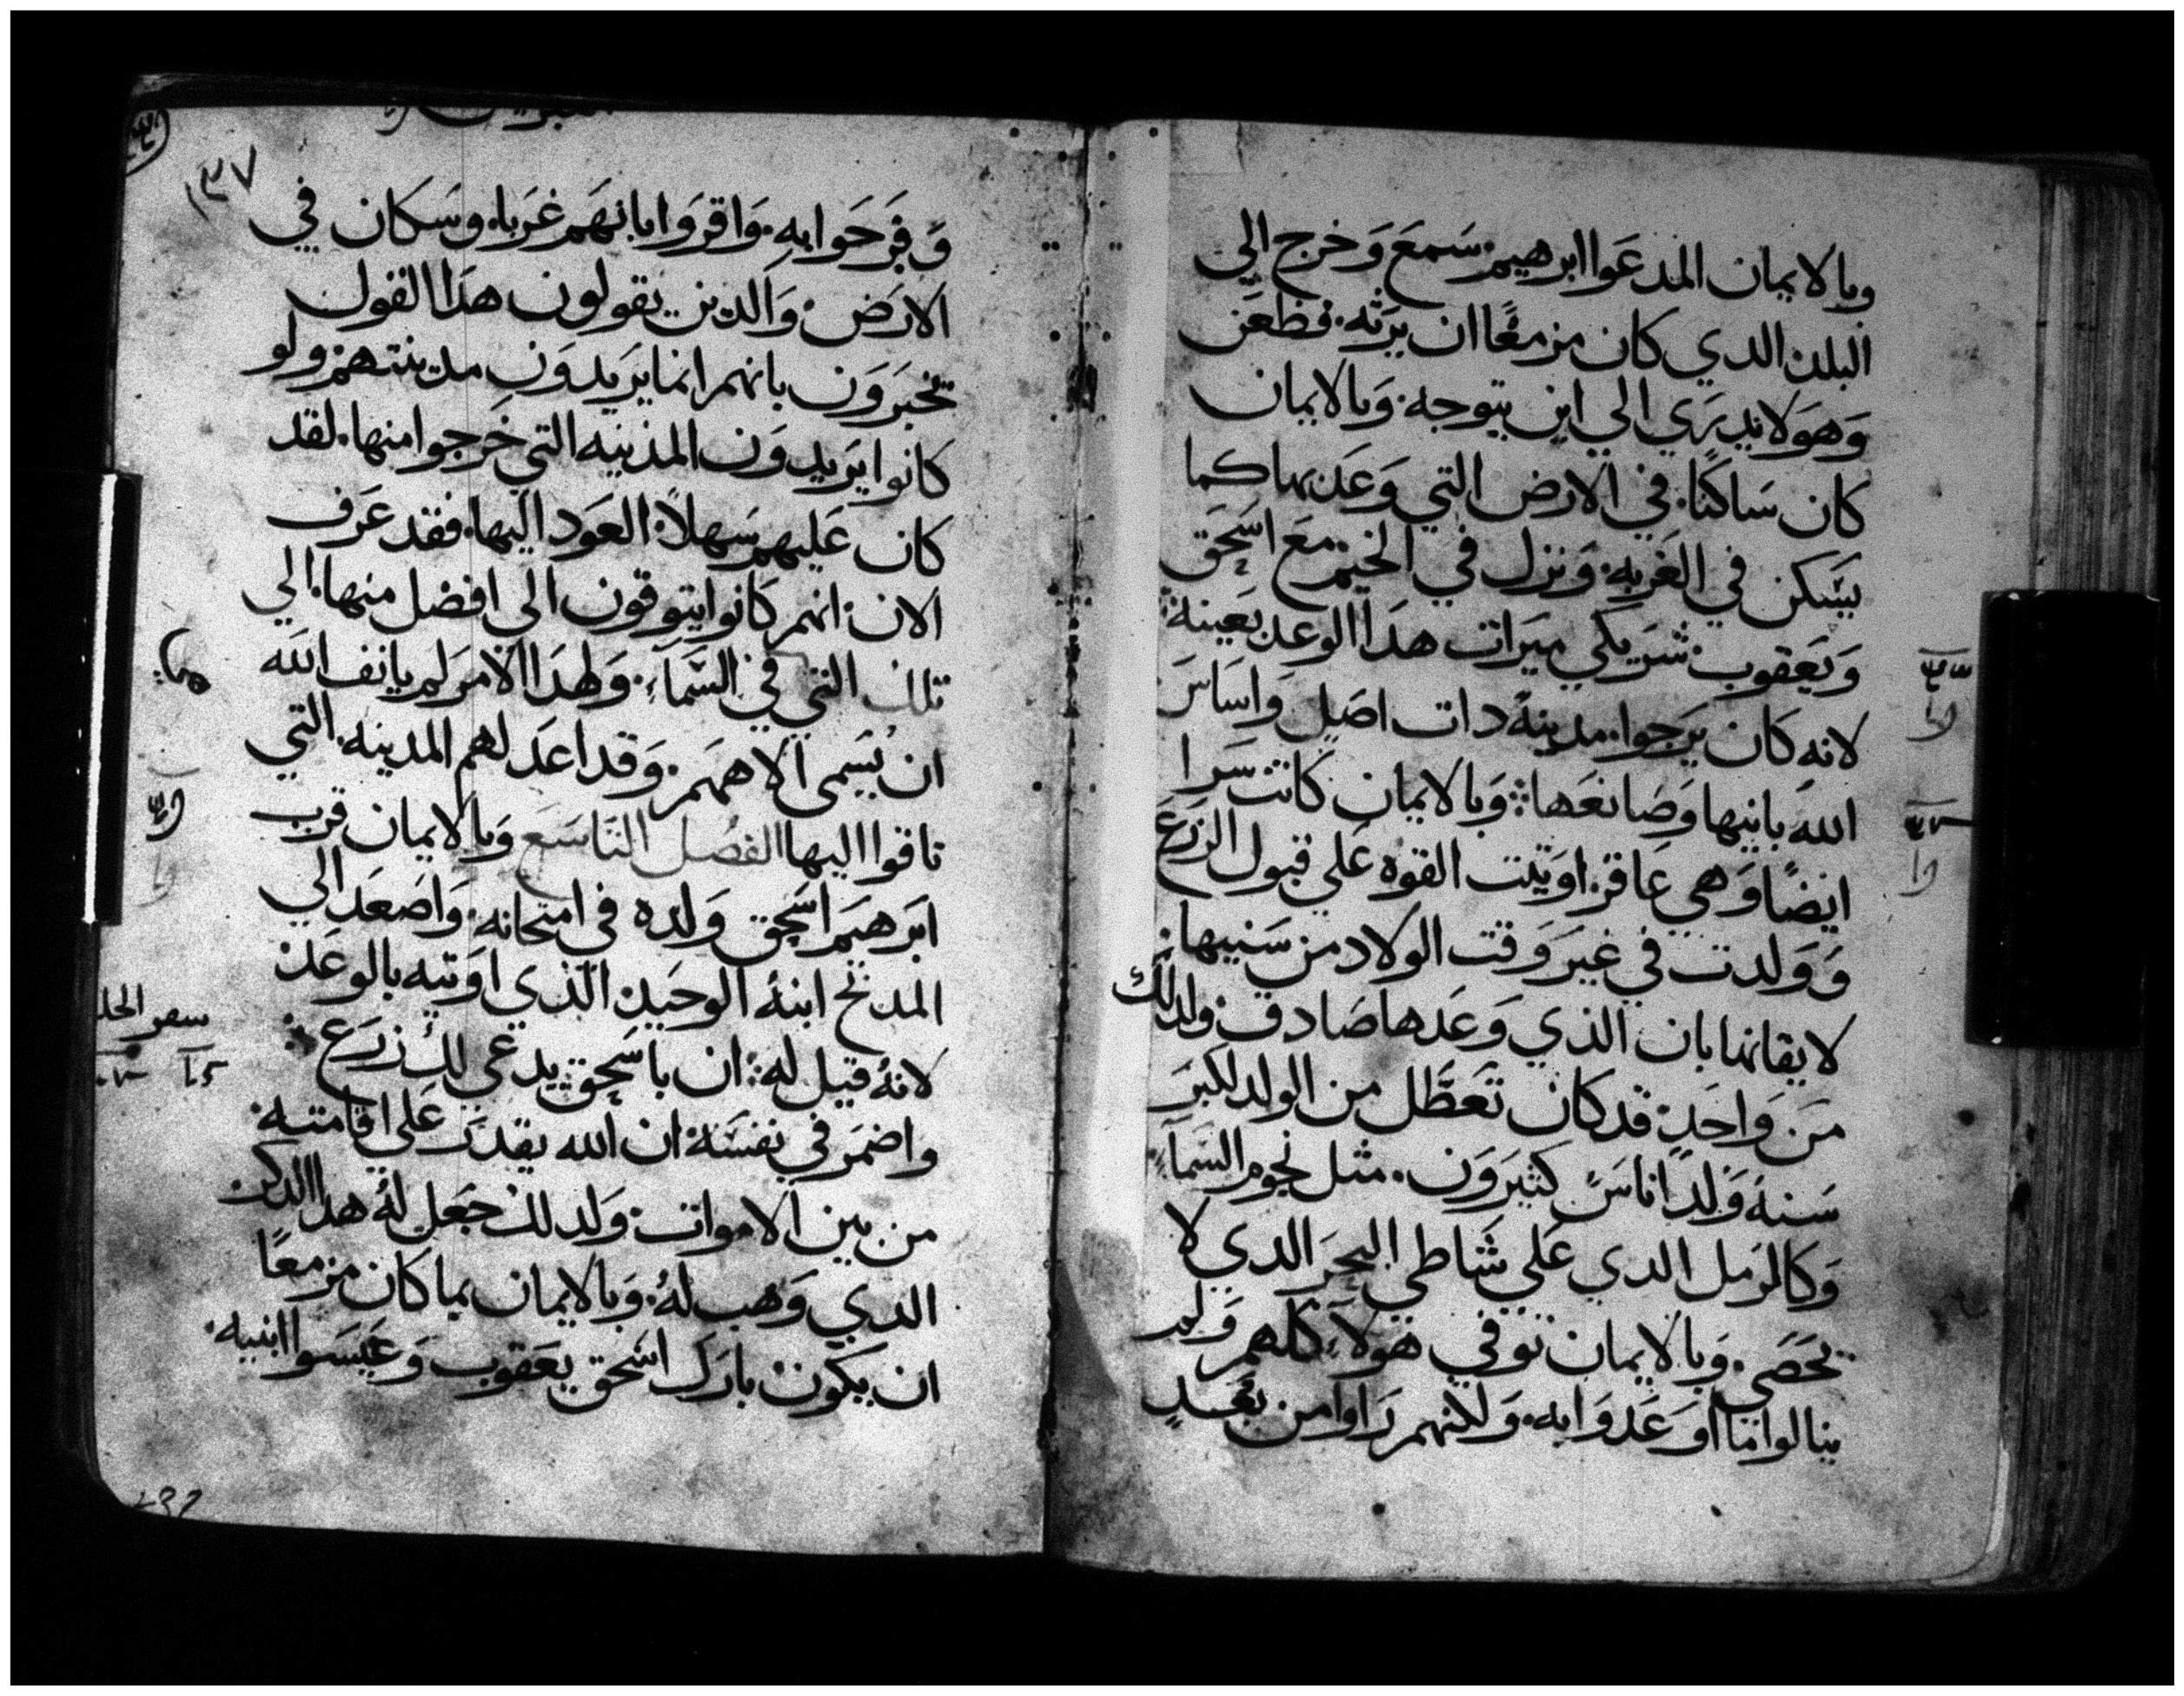 وبالايمان المدعوا ابرهيم. سمع وخرج الي
البلد الدي كان مزمعًا ان يرثه. فظعن
وهو لا يدري الي اين يتوجه. وبالايمان
كان ساكنًا. في الارض التي وعد بها كما
يسكن في الغربه. ونزل في الخيم. مع اسحق
ويعقوب. شريكي ميرات هدا الوعد بعينه
لانه كان يرجوا. مدينه دات اصل واساس
الله بانيها وصانعها: وبالايمان كانت سرا
ايضًا وهي عاقر. اوتيت القوه علي قبول الزرع
وولدت في غير وقت الولاد من سنيها.
لايقانها بان الذي وعدها صادق. ولدلك
من واحد. قد كان تعطل من الولد لكبر
سنه ولد اناس كثيرون. مثل نجوم السمآء.
وكالرمل الدي علي شاطي البحر الدي لا
تحصي. وبالايمان توفي هولآء كلهم ولم
ينالوا ما اوعدوا به. ولكنهم راوا من بعد
١٣٧
وفرحوا به. واقروا بانهم غربا. وسكان في
الارض. والدين يقولون هدا القول
تخبرون بانهم انما يريدون مدينتهم. ولو
كانوا يريدون المدينه التي خرجوا منها. لقد
كان عليهم سهلاً. العود اليها. فقد عرف
الان. انهم كانوا يتوقون الي افضل منها. الي
تلك التي في السمآء. ولهدا الامر لم يانف الله
ان يسمي الاههم. وقد اعد لهم المدينه. التي
تاقوا اليها الفصل التاسع وبالايمان قرب
ابرهيم اسحق ولده في امتحانه. واصعد الي
المدبح ابنه الوحيد. الذي اوتيه بالوعد
لانه قيل له: ان باسحق يدعي لك زرع:
واضمر في نفسه. ان الله يقدر علي اقامته
من بين الاموات. ولدلك جعل له هدا الدكر.
الدي وهب له. وبالايمان بما كان مزمعًا
ان يكون بارك اسحق يعقوب وعيسوا ابنيه.